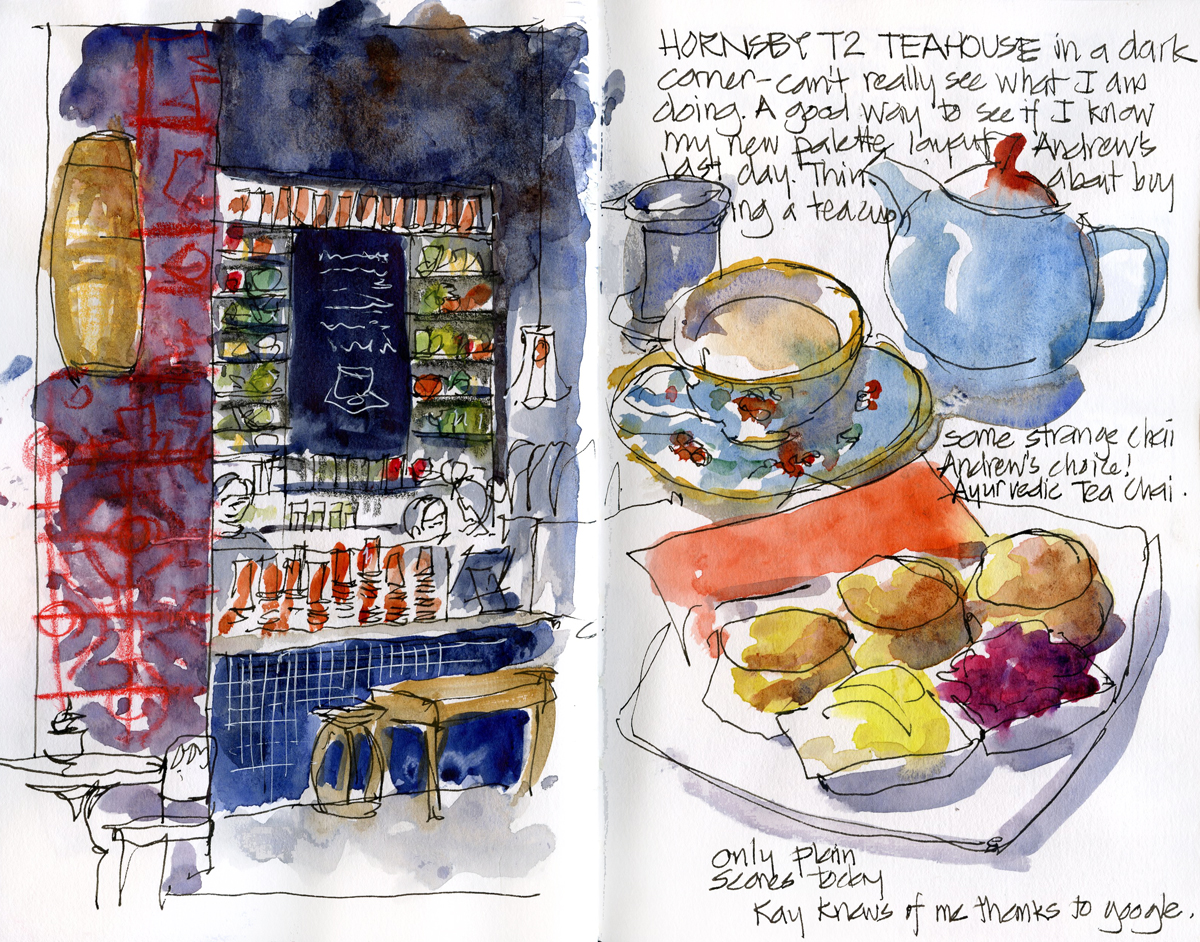 HORNSBY T2 TEAHOUSE in a dark
corner - can't really see what I am
doing. A good way to see if I know
my new palette layout. Andrew's
last day. Thin about buy
ing a teacup
some strange chai
Andrew's choice!
Ayurvedic Tea Chai.
only plain
scones today
Kay knows of me thanks to google.